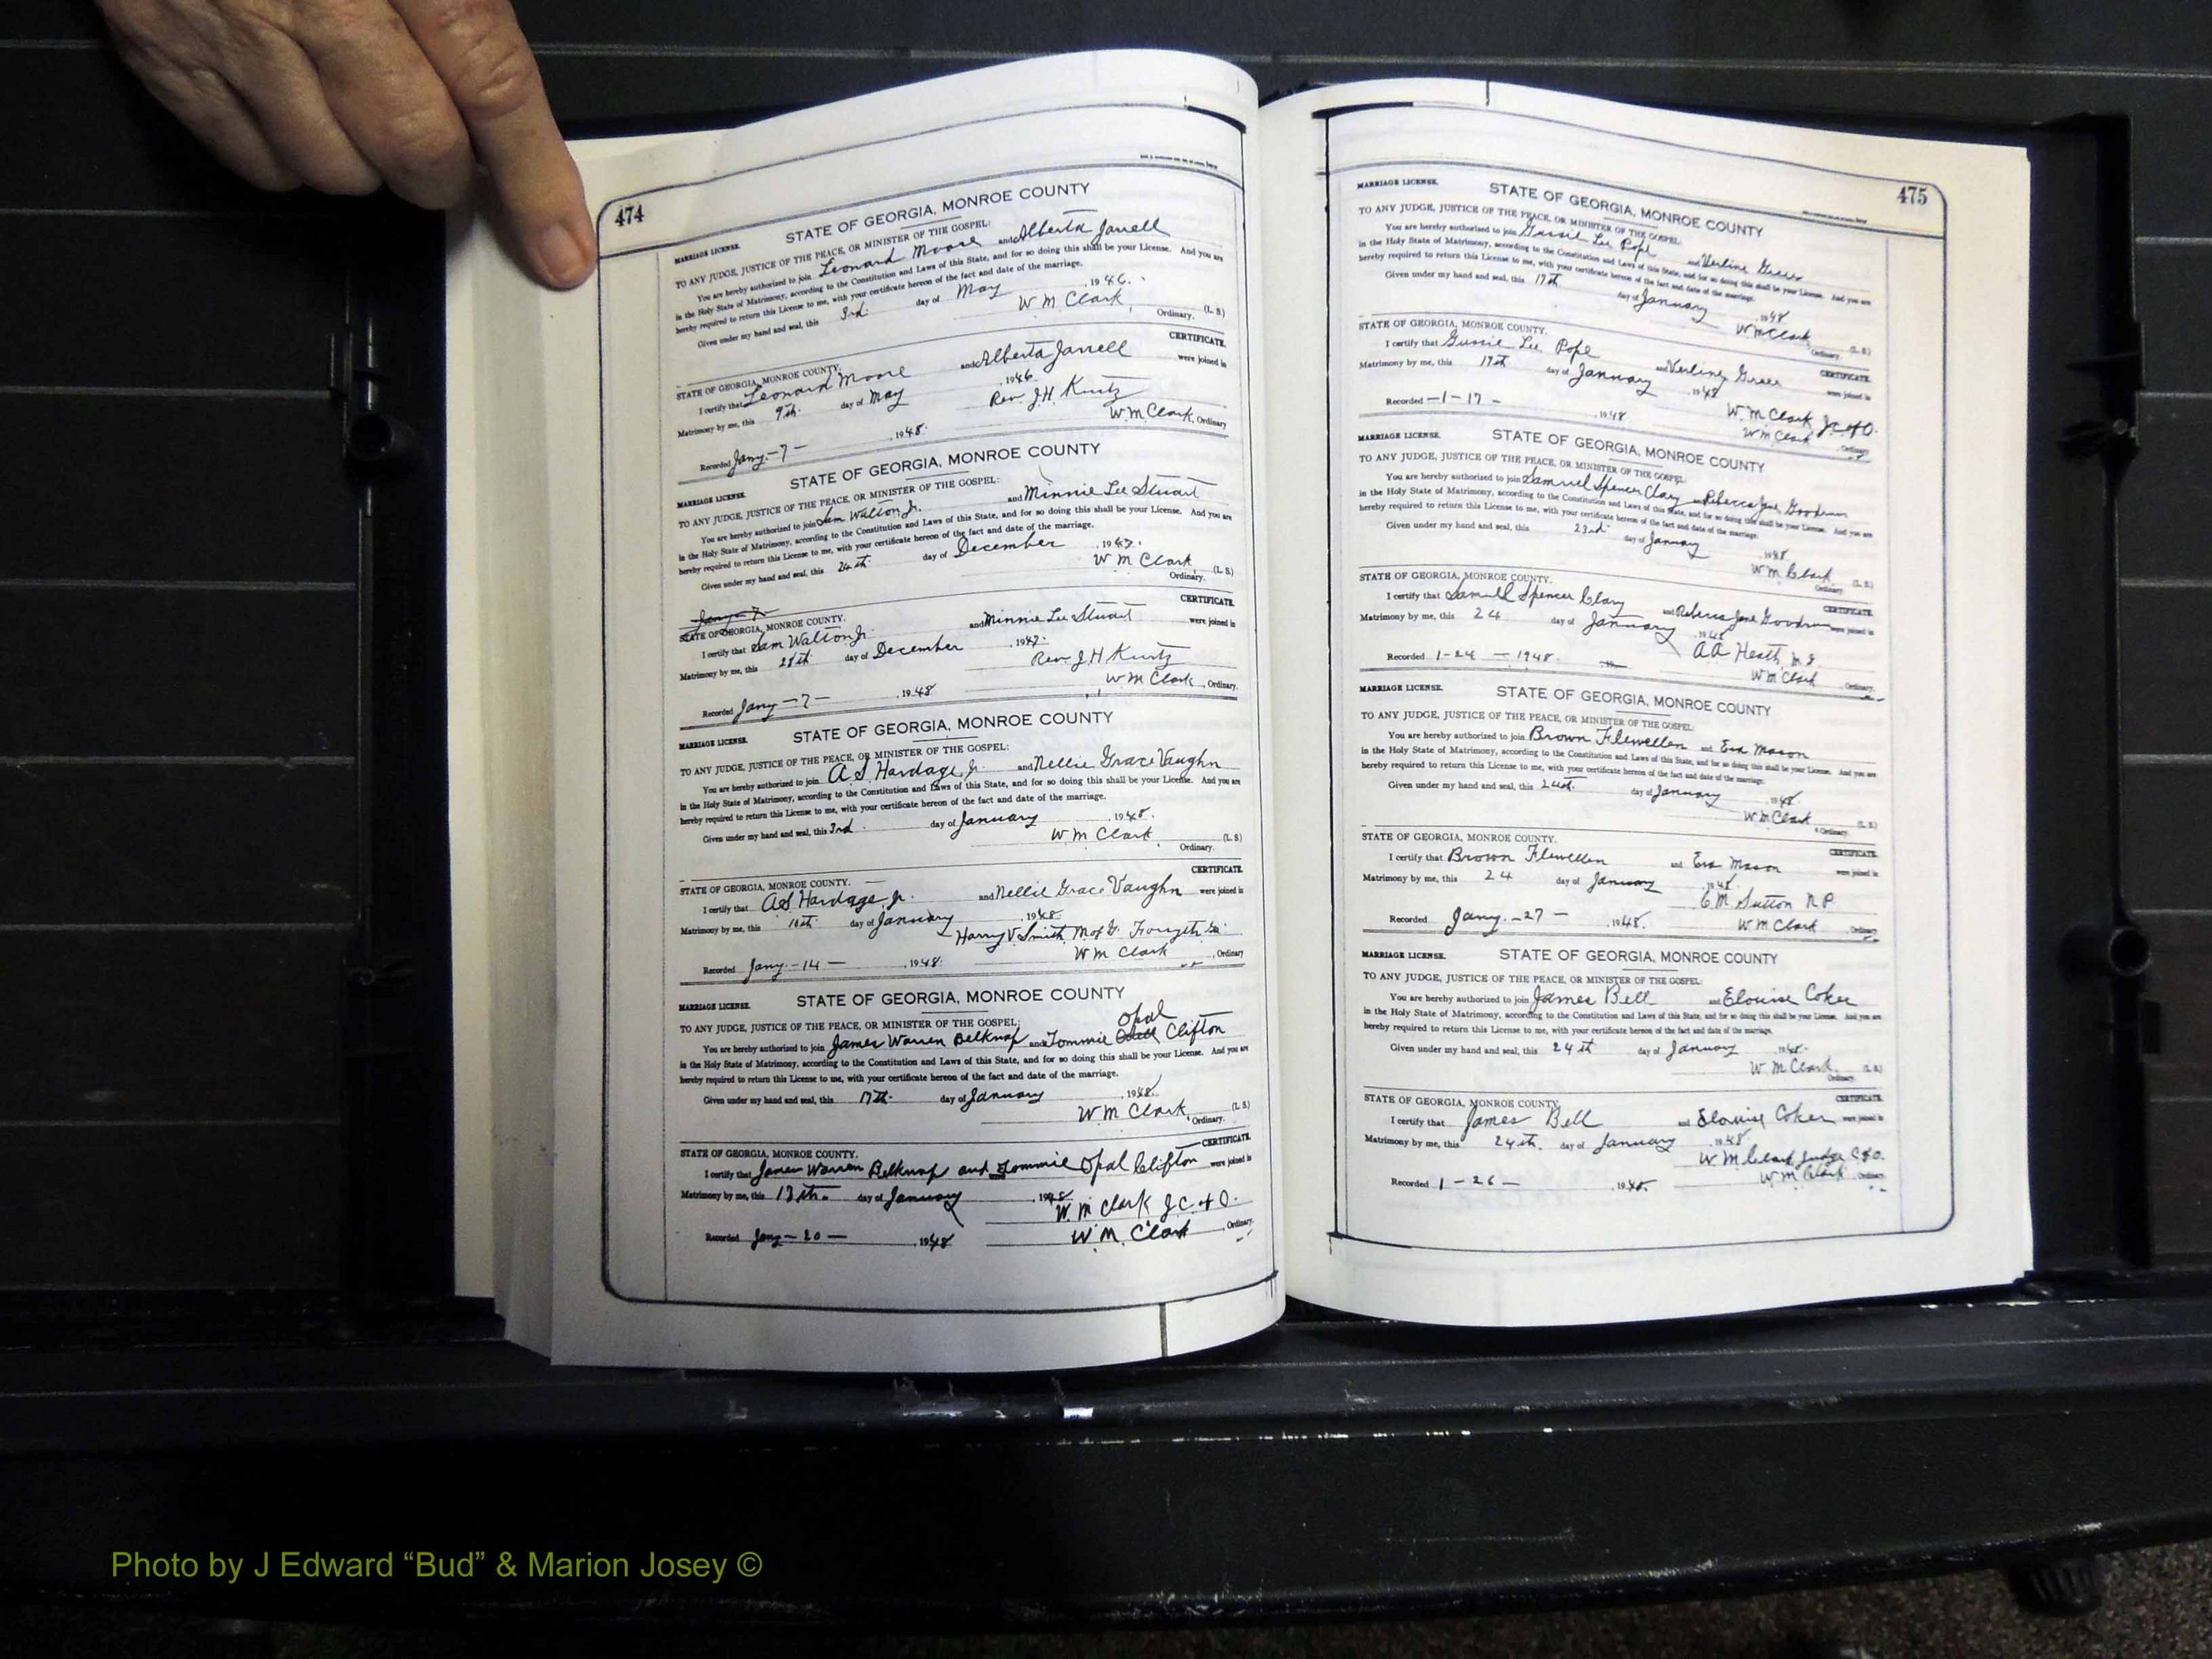 474
MARRIAGE LICENSE. STATE OF GEORGIA, MONROE COUNTY
TO ANY JUDGE, JUSTICE OF THE PEACE, OR MINISTER OF THE GOSPEL:
You are hereby authorized to join Leonard Moore and Alberta Jarrell
in the Holy State of Matrimony, according to the Constitution and Laws of this State, and for so doing this shall be your License. And you are
hereby required to return this License to me, with your certificate hereon of the fact and date of the marriage.
Given under my hand and seal, this 3rd. day of May, 1946.
W M Clark, (L. S.)
Ordinary.
STATE OF GEORGIA, MONROE COUNTY. CERTIFICATE.
I certify that Leonard Moore and Alberta Jarrell were joined in
Matrimony by me, this 9th. day of May, 1946.
Rev. J.H Kurtz
Recorded Jany-7-, 1948. W M Clark, Ordinary
MARRIAGE LICENSE. STATE OF GEORGIA, MONROE COUNTY
TO ANY JUDGE, JUSTICE OF THE PEACE, OR MINISTER OF THE GOSPEL:
You are hereby authorized to join Sam Walton Jr. and Minnie Lee Stuart
in the Holy State of Matrimony, according to the Constitution and Laws of this State, and for so doing this shall be your License. And you are
hereby required to return this License to me, with your certificate hereon of the fact and date of the marriage.
Given under my hand and seal, this 24th. day of December, 1947.
W M Clark (L. S.)
Ordinary.
Jany-7-
STATE OF GEORGIA, MONROE COUNTY. CERTIFICATE.
I certify that Sam Walton Jr. and Minnie Lee Stuart were joined in
Matrimony by me, this 28th day of December, 1947.
Rev. J H Kurtz
Recorded Jany-7-, 1948 W M Clark, Ordinary.
MARRIAGE LICENSE. STATE OF GEORGIA, MONROE COUNTY
TO ANY JUDGE, JUSTICE OF THE PEACE, OR MINISTER OF THE GOSPEL:
You are hereby authorized to join A S Hardage, Jr. and Nellie Grace Vaughn
in the Holy State of Matrimony, according to the Constitution and Laws of this State, and for so doing this shall be your License. And you are
hereby required to return this License to me, with your certificate hereon of the fact and date of the marriage.
Given under my hand and seal, this 3rd. day of January, 1948.
W M Clark, (L. S.)
Ordinary.
STATE OF GEORGIA, MONROE COUNTY. CERTIFICATE.
I certify that A S Hardage, Jr. and Nellie Grace Vaughn were joined in
Matrimony by me, this 10th. day of January, 1948
Harry V Smith M of G. Forsyth Ga.
Recorded Jany-14-, 1948. W M Clark, Ordinary
MARRIAGE LICENSE. STATE OF GEORGIA, MONROE COUNTY
TO ANY JUDGE, JUSTICE OF THE PEACE, OR MINISTER OF THE GOSPEL: Opal
You are hereby authorized to join James Warren Belknap and Tommie Clifton
in the Holy State of Matrimony, according to the Constitution and Laws of this State, and for so doing this shall be your License. And you are
hereby required to return this License to me, with your certificate hereon of the fact and date of the marriage.
Given under my hand and seal, this 17th. day of January, 1948.
W M Clark, (L. S.)
Ordinary.
STATE OF GEORGIA, MONROE COUNTY. CERTIFICATE.
I certify that James Warren Belknap and Tommie Opal Clifton were joined in
Matrimony by me, this day of January, 1948
W. M Clark J.C. of O.
Recorded Jany-20-, 1948 W. M. Clark, Ordinary.
475
MARRIAGE LICENSE. STATE OF GEORGIA, MONROE COUNTY
TO ANY JUDGE, JUSTICE OF THE PEACE, OR MINISTER OF THE GOSPEL:
You are hereby authorized to join Gussie Lee Pope and Verline
in the Holy State of Matrimony, according to the Constitution and Laws of this State, and for so doing this shall be your License. And you are
hereby required to return this License to me, with your certificate hereon of the fact and date of the marriage.
Given under my hand and seal, this 17th day of January, 1948
W M Clark (L. S.)
Ordinary.
STATE OF GEORGIA, MONROE COUNTY. CERTIFICATE.
I certify that Gussie Lee Pope and Verline were joined in
Matrimony by me, this 17th day of January 1948
W. M Clark J.C. of O.
Recorded -1-17-, 1948. W M Clark, Ordinary.
MARRIAGE LICENSE. STATE OF GEORGIA, MONROE COUNTY
TO ANY JUDGE, JUSTICE OF THE PEACE, OR MINISTER OF THE GOSPEL:
You are hereby authorized to join Samuel Spencer Clary and Rebecca Jane Goodrum
in the Holy State of Matrimony, according to the Constitution and Laws of this State, and for so doing this shall be your License. And you are
hereby required to return this License to me, with your certificate hereon of the fact and date of the marriage.
Given under my hand and seal, this 23rd day of January, 1948.
W M Clark (L. S.)
Ordinary.
STATE OF GEORGIA, MONROE COUNTY. CERTIFICATE.
I certify that Samuel Spencer Clary and Rebecca Jane Goodrum were joined in
Matrimony by me, this 24 day of January, 1948
A A Heath, M. G.
Recorded 1-24-1948. W M Clark Ordinary.
MARRIAGE LICENSE. STATE OF GEORGIA, MONROE COUNTY
TO ANY JUDGE, JUSTICE OF THE PEACE, OR MINISTER OF THE GOSPEL:
You are hereby authorized to join Brown Flewellen and Eva Mason
in the Holy State of Matrimony, according to the Constitution and Laws of this State, and for so doing this shall be your License. And you are
hereby required to return this License to me, with your certificate hereon of the fact and date of the marriage.
Given under my hand and seal, this day of January, 1948.
W M Clark (L. S.)
Ordinary.
STATE OF GEORGIA, MONROE COUNTY. CERTIFICATE.
I certify that Brown Flewellen and Eva Mason were joined in
Matrimony by me, this 24 day of January, 1948.
C M Sutton N.P.
Recorded Jany.-27-, 1948. W M Clark Ordinary.
MARRIAGE LICENSE. STATE OF GEORGIA, MONROE COUNTY
TO ANY JUDGE, JUSTICE OF THE PEACE, OR MINISTER OF THE GOSPEL:
You are hereby authorized to join James Bell and Elouise Coker
in the Holy State of Matrimony, according to the Constitution and Laws of this State, and for so doing this shall be your License. And you are
hereby required to return this License to me, with your certificate hereon of the fact and date of the marriage.
Given under my hand and seal, this 24th day of January, 1948.
W M Clark, (L. S.)
Ordinary.
STATE OF GEORGIA, MONROE COUNTY. CERTIFICATE.
I certify that James Bell and Elouise Coker were joined in
Matrimony by me, this 24th. day of January, 1948
W M Clark Judge C of O.
Recorded 1-26-, 1948. W M Clark, Ordinary
Photo by J Edward “Bud” & Marion Josey ©